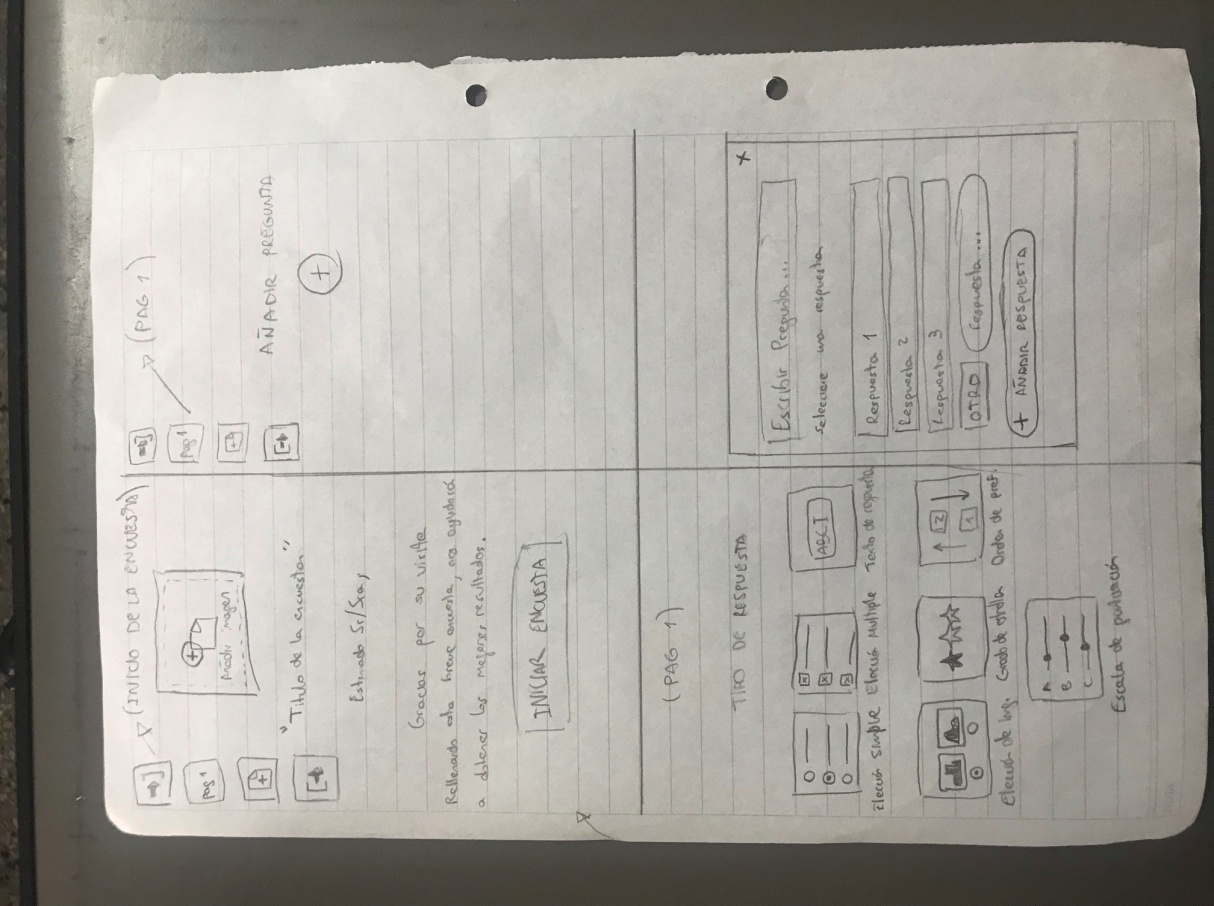 (INICIO DE LA ENCUESTA)
pag 1
Añadir imagen
"Titulo de la encuesta"
Estimado Sr/Sra,
Gracias por su visita
Rellenando esta breve encuesta, nos ayudará
a obtener los mejores resultados.
INICIAR ENCUESTA
(PAG 1)
pag 1
AÑADIR PREGUNTA
(PAG 1)
TIPO DE RESPUESTA
ABCI
Elección SIMPLE Elección Multiple Texto de respuesta
2
1
Elección de img. Grado de estrella Orden de pref.
A
B
C
Escala de puntuación
X
Escribir Pregunta...
Seleccione una respuesta
Respuesta 1
Respuesta 2
Respuesta 3
OTRO respuesta...
+ AÑADIR RESPUESTA